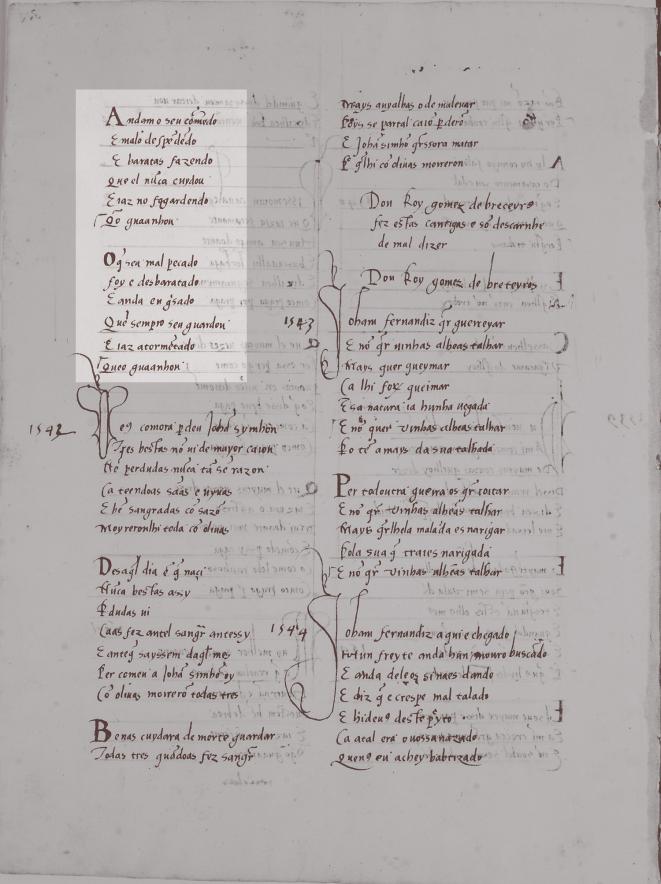 Andam o seu comedo
E malo despēdedo
E baratas fazendo
que el nūca cuydou
E iaz no fogardendo
Qō guaanhou
O q̄ seu mal pecado
foy e desbaratado
E anda en q̄sado
Que sempre seu guardou
E iaz atormētado
Queo guaanhou
1542
perdeu Johā symhon
Tres bestas nō ui de mayor caion
Nē perdudas nūca tā sē razon
Ca teendoas sāas e uyuas
E bē sangradas cō sazō
Moyreronlhi toda cō oliuas
Desaq̄l dia ē q̄ naçi
Nūca bestas assy
Pdudas ui
Caas fez antel sangr̄ ancessy
E anteq̄ sayssem daq̄l mes
Per comen a Johā simhō oy
Cō oliuas morrerō todas tres
Benas cuydara de morte guardar
Todas tres quādoas fez sangr̄
Mays auyalhas o de maleuar
Poys se par tal caiō pderō
E Johā simhō
P q̄lhi cō oliuas morreron
Don Roy gomez de breteyros
fez estas cantigas e sō descarnho
de mal dizer
Don Roy gomez de breteyros
1543
Joham fernandiz q̄r guerreyar
E nō q̄r uinhas alheas talhar
Mays quer queymar
Ca lhi foy queimar
Esa natura ia hunha uegada
E nō quer uinhas alheas talhar
Po tē a mays da sua talhada
Per tal outra guerra os q̄r coitar
E nō q̄r uinhas alheas talhar
Mays q̄rlhela malada es narigar
Pola sua q̄ traies narigada
E nō q̄r uinhas alheas talhar
1544
Joham fernandiz aqui e chegado
Hūun freyte anda hūn mouro buscado
E anda deleos sinaes dando
E diz q̄ e crespe mal talado
E hideu
Ca atal era o uosso nazado
Quen q̄ eu achey babtizado